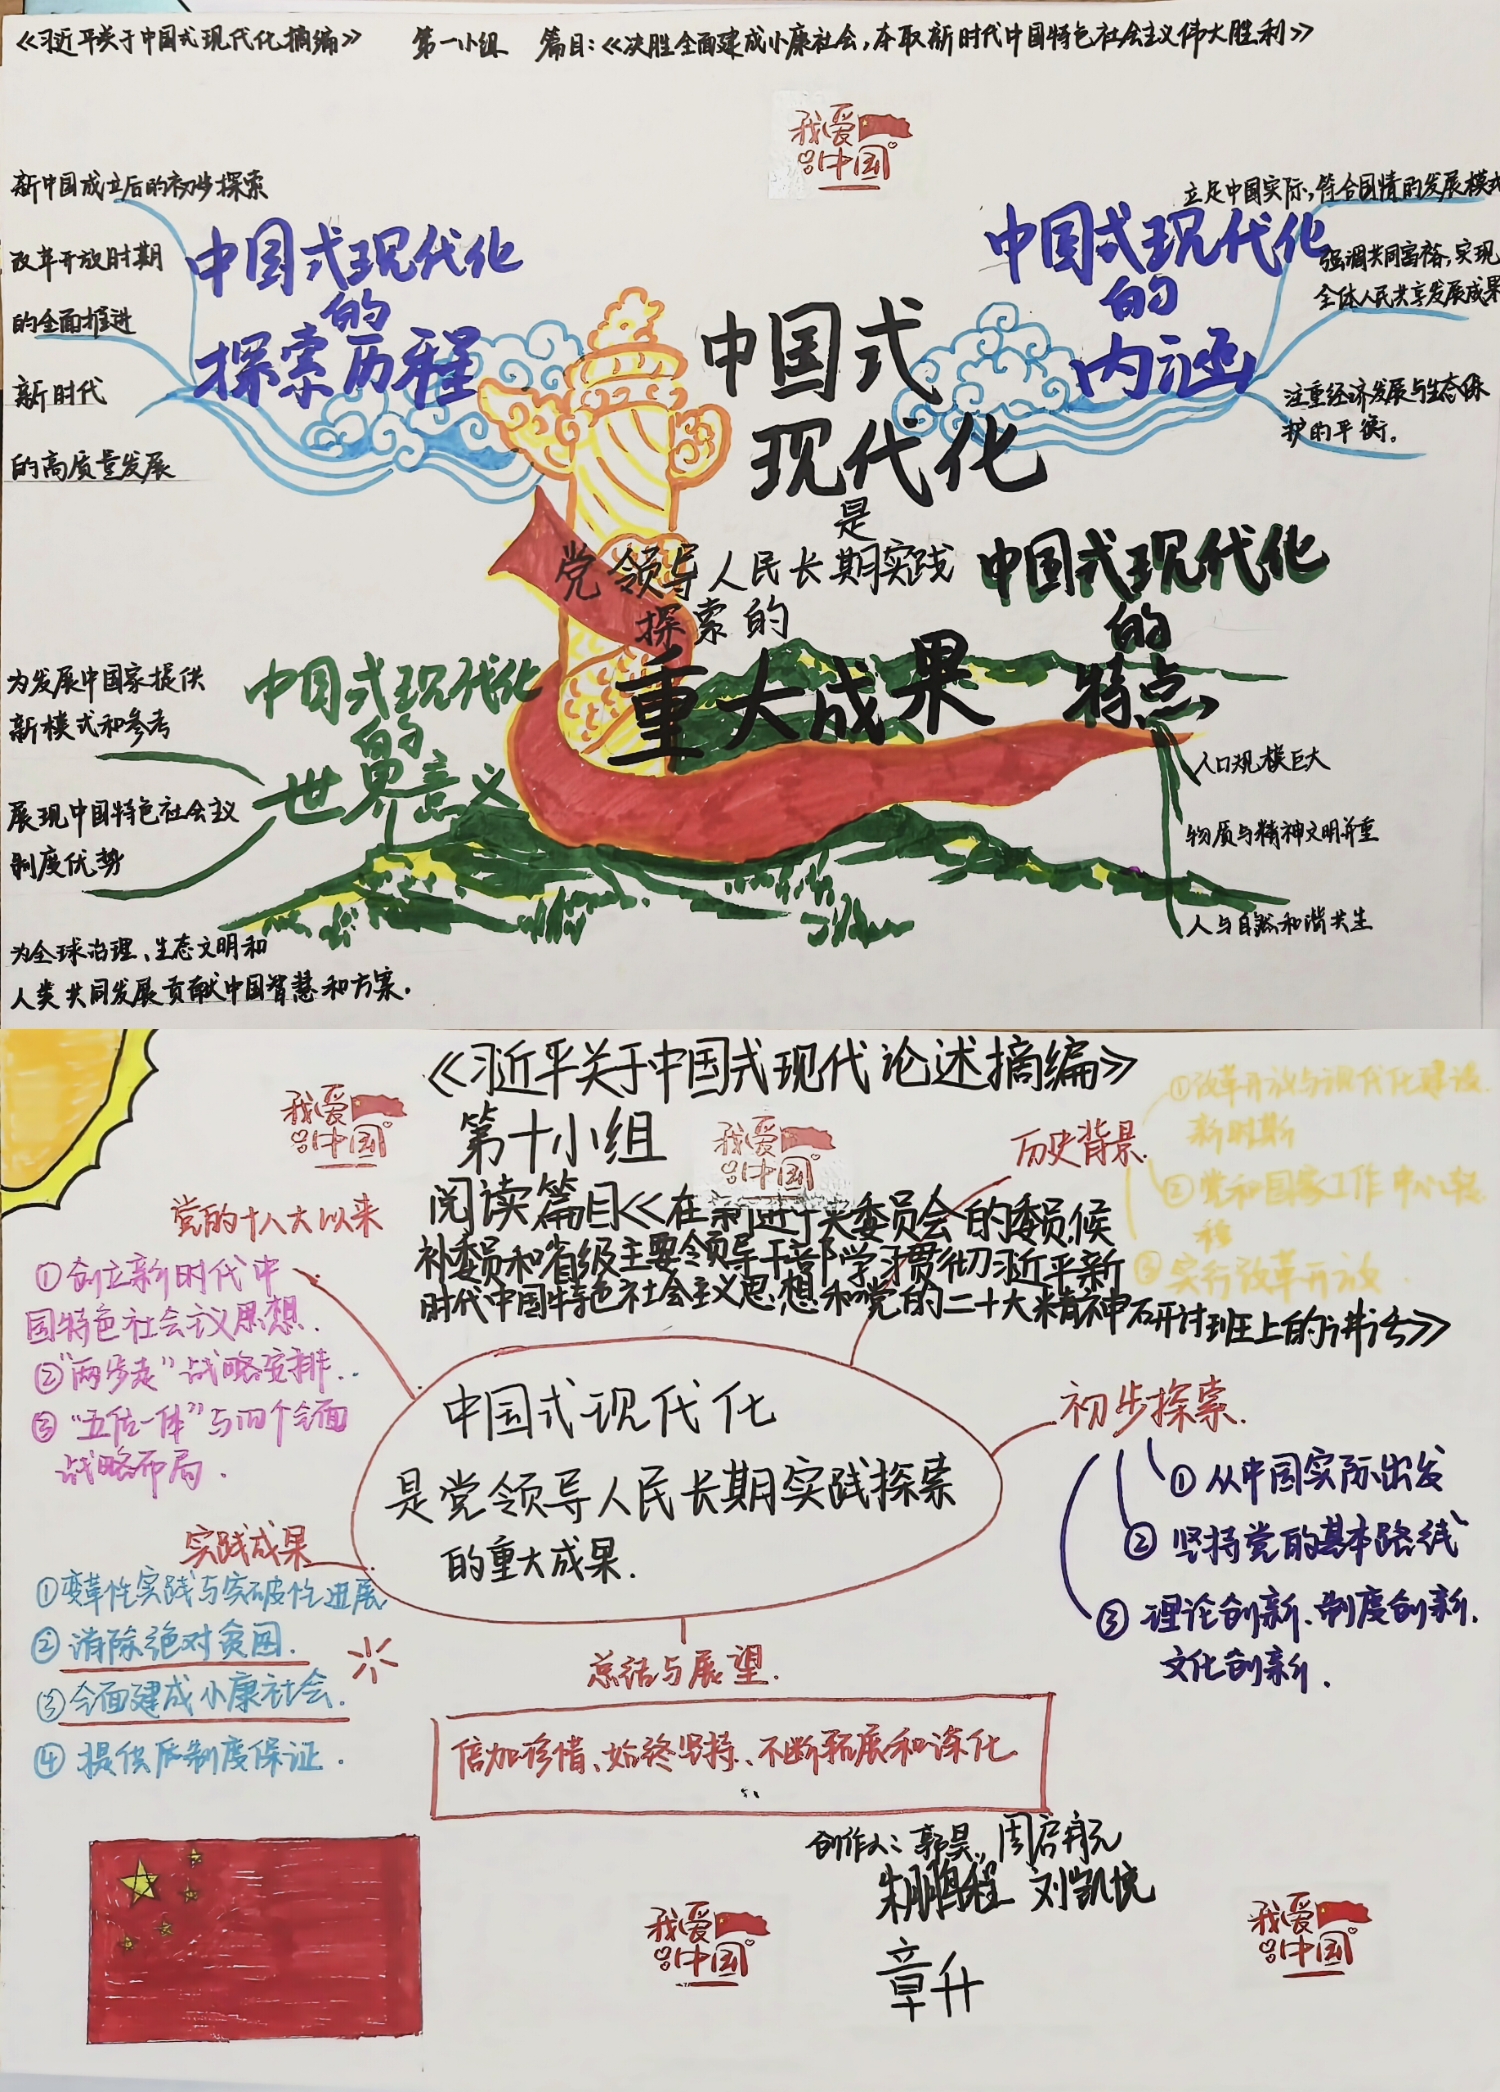 《习近平关于中国式现代化摘编》 第一小组 篇目：《决胜全面建成小康社会，夺取新时代中国特色社会主义伟大胜利》
我爱
中国
新中国成立后的初步探索
改革开放时期
的全面推进
新时代
的高质量发展
中国式现代化
的
探索历程
中国式现代化
的
内涵
立足中国实际，符合国情的发展模式
强调共同富裕，实现
全体人民共享发展成果
注重经济发展与生态保
护的平衡。
中国式
现代化
是
党领导人民长期实践
探索的
重大成果
中国式现代化
的
特点
人口规模巨大
物质与精神文明并重
人与自然和谐共生
中国式现代化
的
世界意义
为发展中国家提供
新模式和参考
展现中国特色社会主义
制度优势
为全球治理、生态文明和
人类共同发展贡献中国智慧和方案。
《习近平关于中国式现代论述摘编》
第十小组
我爱
中国
我爱
中国
阅读篇目《在新进中央委员会的委员，候
补委员和省级主要领导干部学习贯彻习近平新
时代中国特色社会主义思想和党的二十大精神研讨班上的讲话》
历史背景
①改革开放与现代化建设
新时期
②党和国家工作中心转
移
③实行改革开放.
党的十八大以来
①创立新时代中
国特色社会主义思想.
②“两步走”战略安排..
③“五位一体”与四个全面
战略布局.
中国式现代化
是党领导人民长期实践探索
的重大成果.
初步探索.
①从中国实际出发
②坚持党的基本路线
③理论创新、制度创新.
文化创新.
实践成果
①变革性实践与突破性进展
②消除绝对贫困.
③全面建成小康社会.
④提供 制度保证.
总结与展望.
倍加珍惜、始终坚持、不断拓展和深化
创作人：郭昊、周启航
朱鹏程 刘凯悦
章升
我爱
中国
我爱
中国